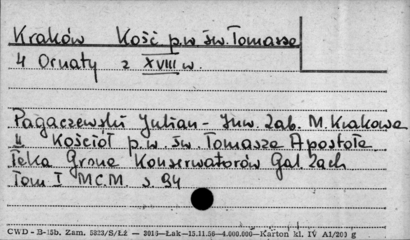 Kraków Kość p.w św. Tomasza
4 Ornaty z XVIII w.
Pagaczewski Julian - Inw. Zab. M. Krakowa
II Kościół p.w. św. Tomasza Apostoła
Teka Grona Konserwatorów Gal. Zach
Tom I MCM s. 94
CWD - B-15b. Zam. 5823/S/Łź — 3016—Łak—15.11.56—4.000.000—Karton kl. IV A1/200 g